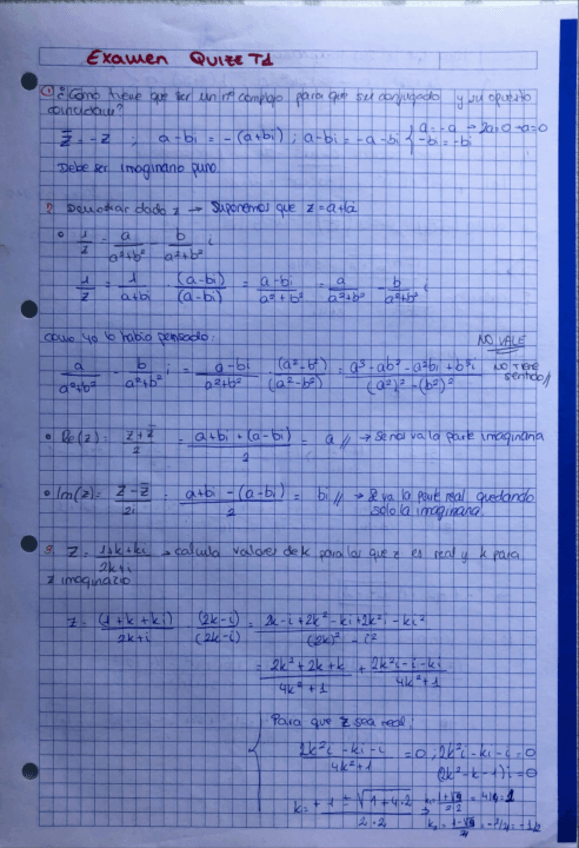 Examen Quize T1
① ¿Cómo tiene que ser un nº complejo para que su conjugado y su opuesto
coincidan?
z̄ = -z ; a-bi = -(a+bi) ; a-bi = -a-bi { a=-a → 2a=0 → a=0
-bi = -bi
Debe ser imaginario puro.
2. Demostrar dado z → Suponemos que z = a+bi
• 1/z = a/(a²+b²) - b/(a²+b²) i
1/z = 1/(a+bi) · (a-bi)/(a-bi) = (a-bi)/(a²+b²) = a/(a²+b²) - b/(a²+b²) i
como yo lo había pensado:
NO VALE
a/(a²+b²) - b/(a²+b²) i = (a-bi)/(a²+b²) · (a²-b²)/(a²-b²) = (a³-ab²-a²bi+b³i)/((a²)²-(b²)²)
NO TIENE
sentido//
• Re(z): (z+z̄)/2 = (a+bi+(a-bi))/2 = a // → Se nos va la parte imaginaria
• Im(z)= (z-z̄)/2i = (a+bi-(a-bi))/2 = bi // → Se va la parte real quedando
solo la imaginaria.
3. z = (1+k+ki)/(2k+i) → calcula valores de k para los que z es real y k para
z imaginario
z = (1+k+ki)/(2k+i) · (2k-i)/(2k-i) = (2k-i+2k²-ki+2k²i-ki²)/((2k)²-i²)
= (2k²+2k+k)/(4k²+1) + (2k²i-i-ki)/(4k²+1)
Para que z sea real:
(2k²i-ki-i)/(4k²+1) = 0 ; 2k²i-ki-i=0
(2k²-k-1)i=0
k = (+1 ± √(1+4·2))/(2·2)